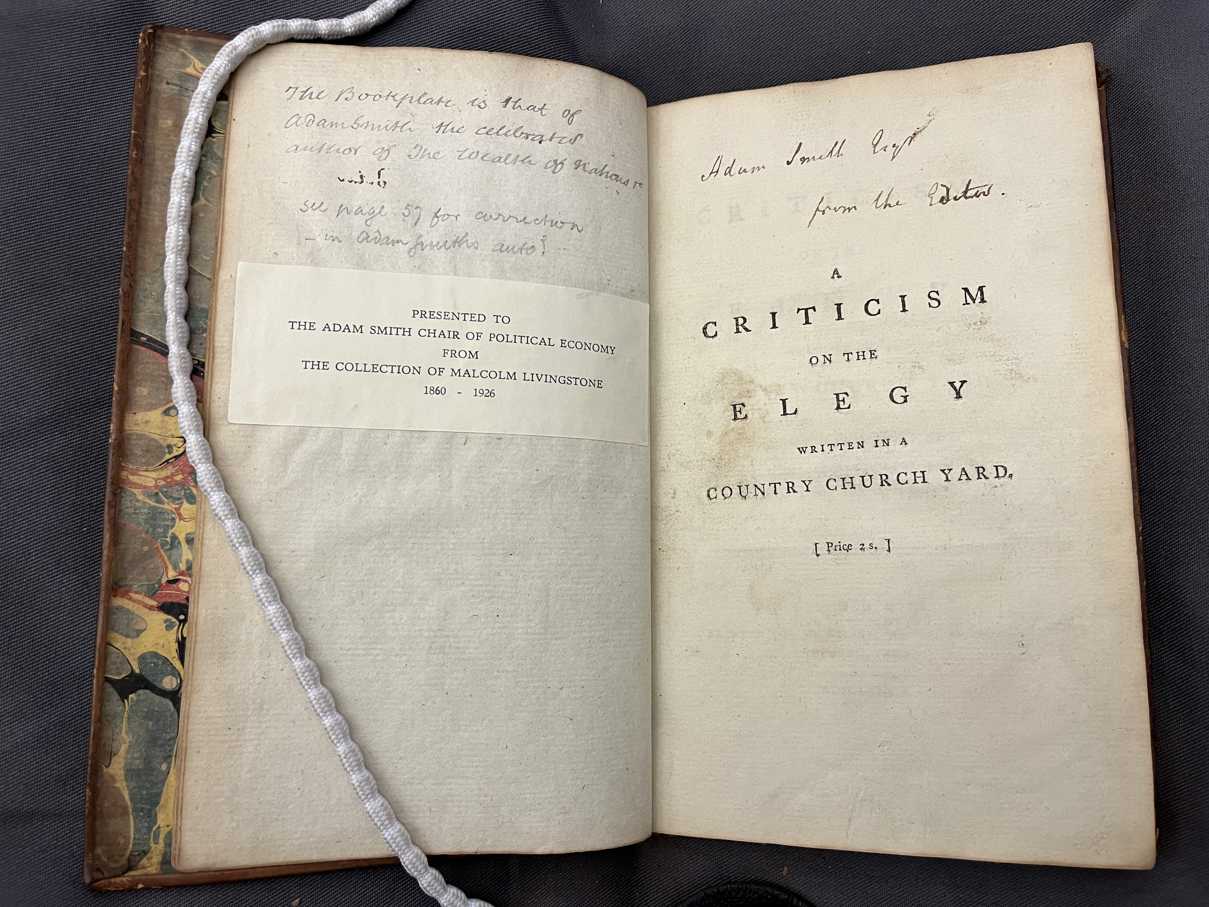 The Bookplate is that of
Adam Smith the celebrated
author of The Wealth of Nations
see page 57 for correction
– in Adam Smiths auto:
PRESENTED TO
THE ADAM SMITH CHAIR OF POLITICAL ECONOMY
FROM
THE COLLECTION OF MALCOLM LIVINGSTONE
1860 - 1926
Adam Smith Esqr
from the Editor.
A
CRITICISM
ON THE
ELEGY
WRITTEN IN A
COUNTRY CHURCH YARD.
[ Price 2 s. ]